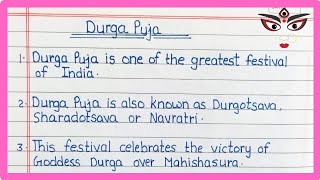 Durga Puja
1. Durga Puja is one of the greatest festival
of India.
2. Durga Puja is also known as Durgotsava,
Sharadotsava or Navratri.
3. This festival celebrates the victory of
Goddess Durga over Mahishasura.